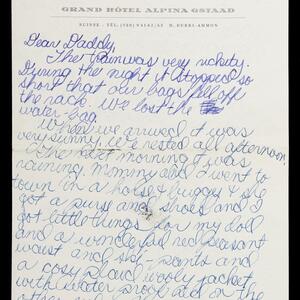 GRAND HÔTEL ALPINA GSTAAD
Dear Daddy,
The train was very rickety.
During the night it stopped so
short that our bags fell off
the rack. We lost the
water-bag.
When we arrived it was
very sunny. We rested all afternoon.
The next morning it was
raining. Mommy and I went to
town in a horse & buggy & she
got a purse and shoes and I
got little things for my doll
and a wonderful red peasant
waist and ski-pants and
a cosy plaid wooly jacket
with water proof and on the